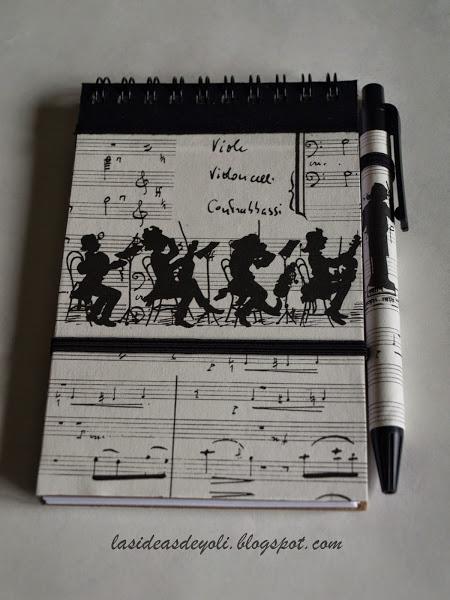 Viole
Violoncelli
Contrabbassi
lasideasdeyoli.blogspot.com